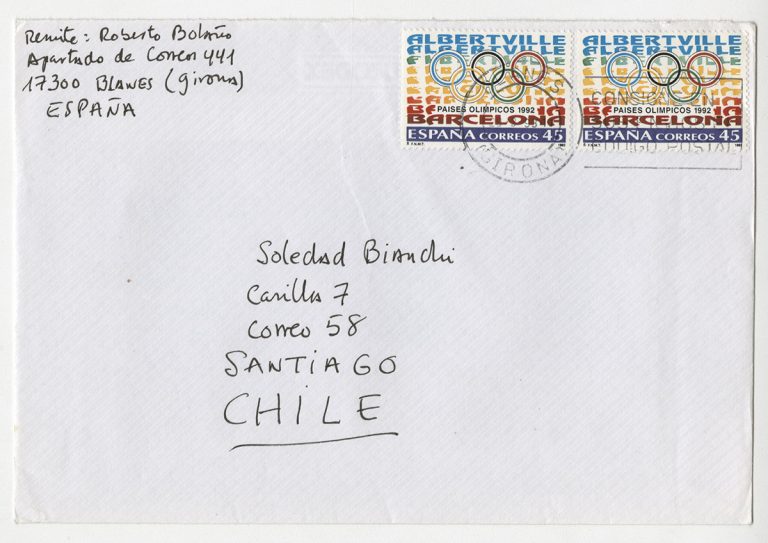 Remite: Roberto Bolaño
Apartado de Correos 441
17300 BLANES (Girona)
ESPAÑA
ALBERTVILLE
PAISES OLIMPICOS 1992
BARCELONA
ESPAÑA CORREOS 45
ALBERTVILLE
PAISES OLIMPICOS 1992
BARCELONA
ESPAÑA CORREOS 45
GIRONA
CONSIGNEN
CODIGO POSTAL
Soledad Bianchi
Casilla 7
Correo 58
SANTIAGO
CHILE